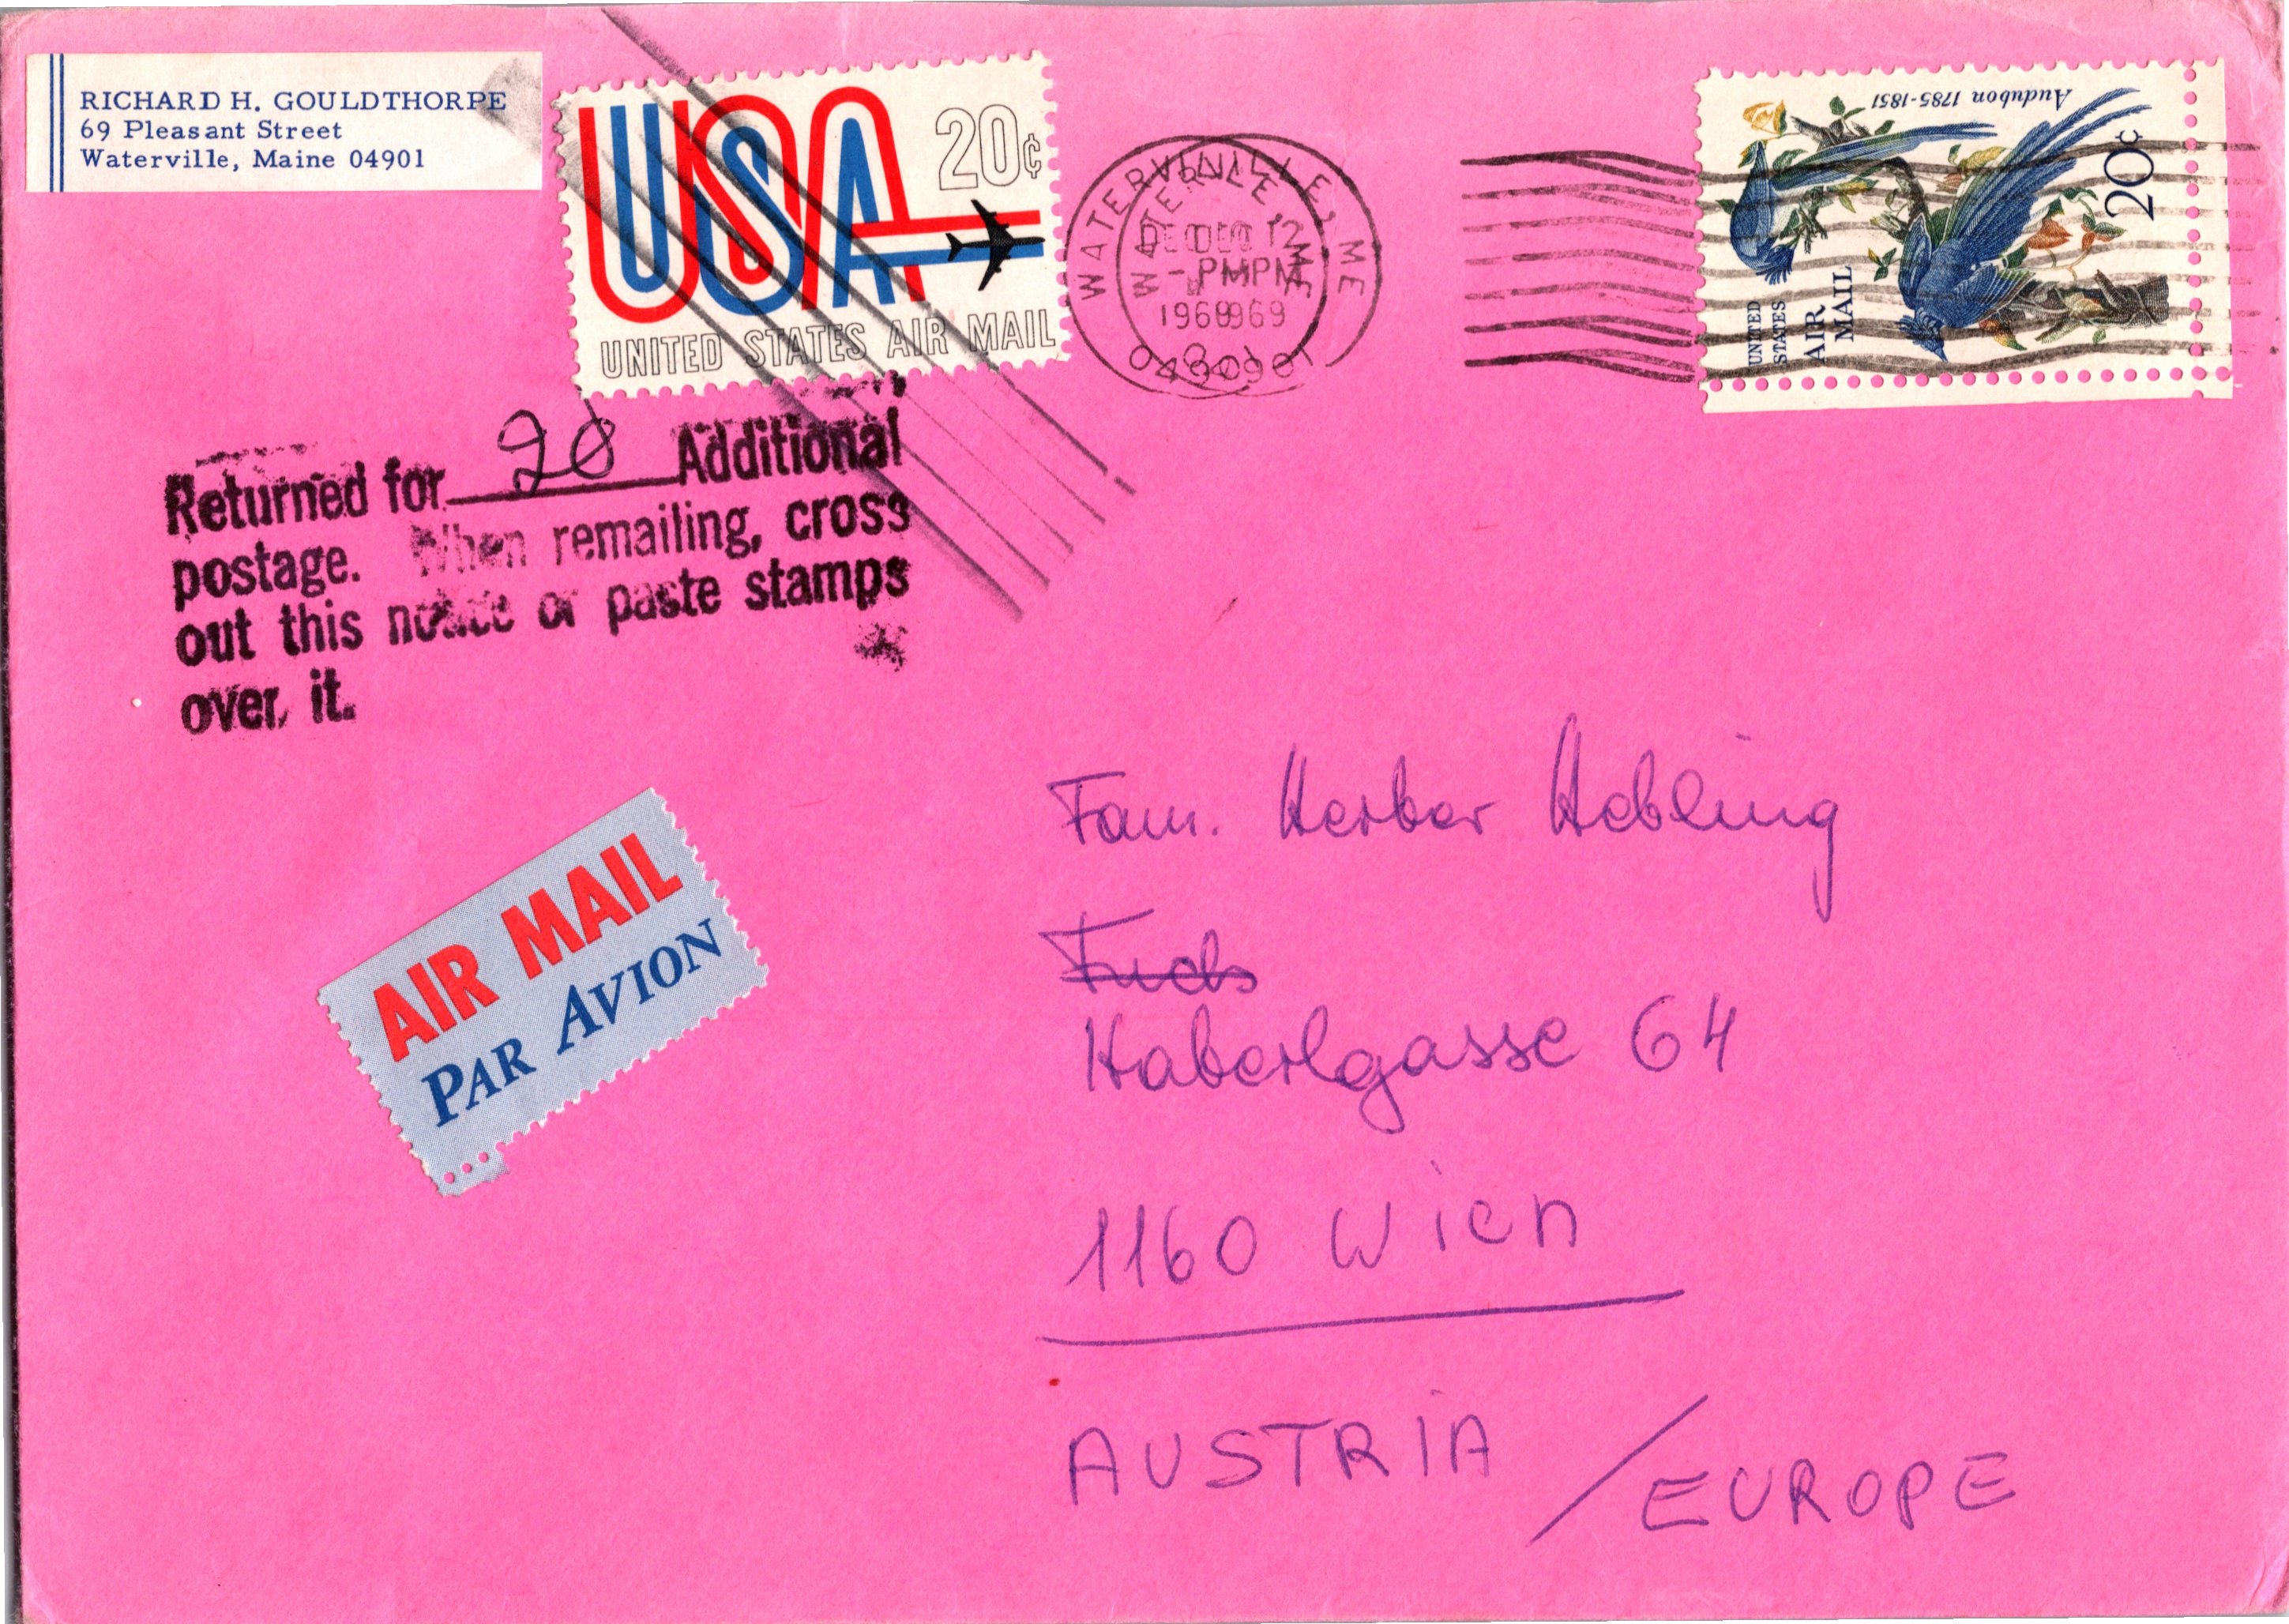 RICHARD H. GOULDTHORPE
69 Pleasant Street
Waterville, Maine 04901
USA 20¢
UNITED STATES AIR MAIL
WATERVILLE, ME
DEC 12
PM
1969
04901
Audubon 1785-1851
20¢
UNITED
STATES
AIR
MAIL
Returned for 20 Additional
postage. When remailing, cross
out this notice or paste stamps
over it.
AIR MAIL
PAR AVION
Fam. Herber Hebling
Haberlgasse 64
1160 Wien
AUSTRIA / EUROPE